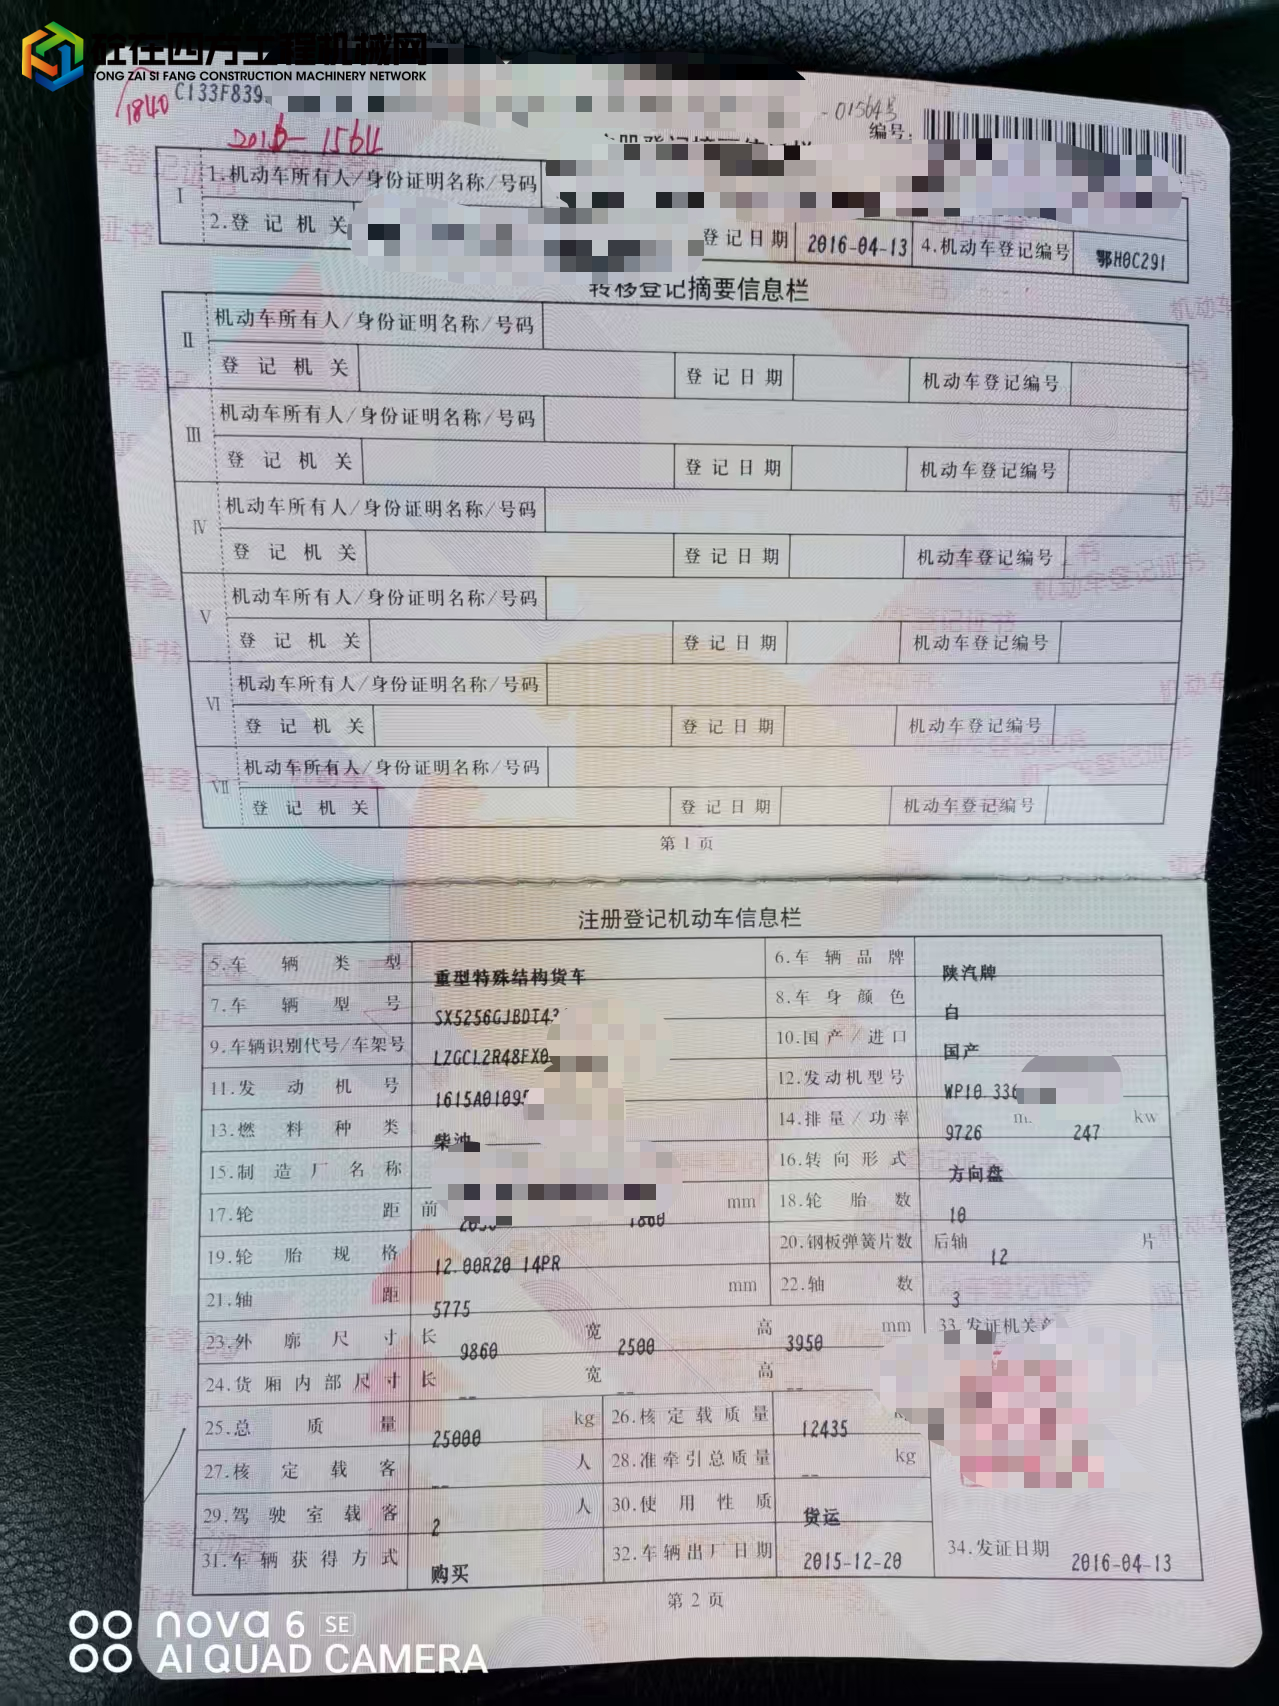 铁在四方工程机械网
TONG ZAI SI FANG CONSTRUCTION MACHINERY NETWORK
1840
C133F839
-01564号
编号:
2016-1564
注册登记摘要信息栏
I
1.机动车所有人/身份证明名称/号码
2.登记机关
登记日期 2016-04-13 4.机动车登记编号 鄂H0C291
转移登记摘要信息栏
II 机动车所有人/身份证明名称/号码
登记机关 登记日期 机动车登记编号
III 机动车所有人/身份证明名称/号码
登记机关 登记日期 机动车登记编号
IV 机动车所有人/身份证明名称/号码
登记机关 登记日期 机动车登记编号
V 机动车所有人/身份证明名称/号码
登记机关 登记日期 机动车登记编号
VI 机动车所有人/身份证明名称/号码
登记机关 登记日期 机动车登记编号
VII 机动车所有人/身份证明名称/号码
登记机关 登记日期 机动车登记编号
第 1 页
注册登记机动车信息栏
5.车辆类型 重型特殊结构货车 6.车辆品牌 陕汽牌
7.车辆型号 SX5256GJBDT43 8.车身颜色 白
9.车辆识别代号/车架号 LZGCL2R48FX0 10.国产/进口 国产
11.发动机号 1615A0109 12.发动机型号 WP10.336
13.燃料种类 柴油 14.排量/功率 9726 247 kw
15.制造厂名称 16.转向形式 方向盘
17.轮距 前 1860 mm 18.轮胎数 10
19.轮胎规格 12.00R20 14PR 20.钢板弹簧片数 后轴 12 片
21.轴距 5775 mm 22.轴数 3
23.外廓尺寸 长 9860 宽 2500 高 3950 mm 33.发证机关章
24.货厢内部尺寸 长 -- 宽 -- 高 --
25.总质量 25000 kg 26.核定载质量 12435
27.核定载客 -- 人 28.准牵引总质量 -- kg
29.驾驶室载客 2 人 30.使用性质 货运
31.车辆获得方式 购买 32.车辆出厂日期 2015-12-20 34.发证日期 2016-04-13
第 2 页
nova 6 SE
AI QUAD CAMERA